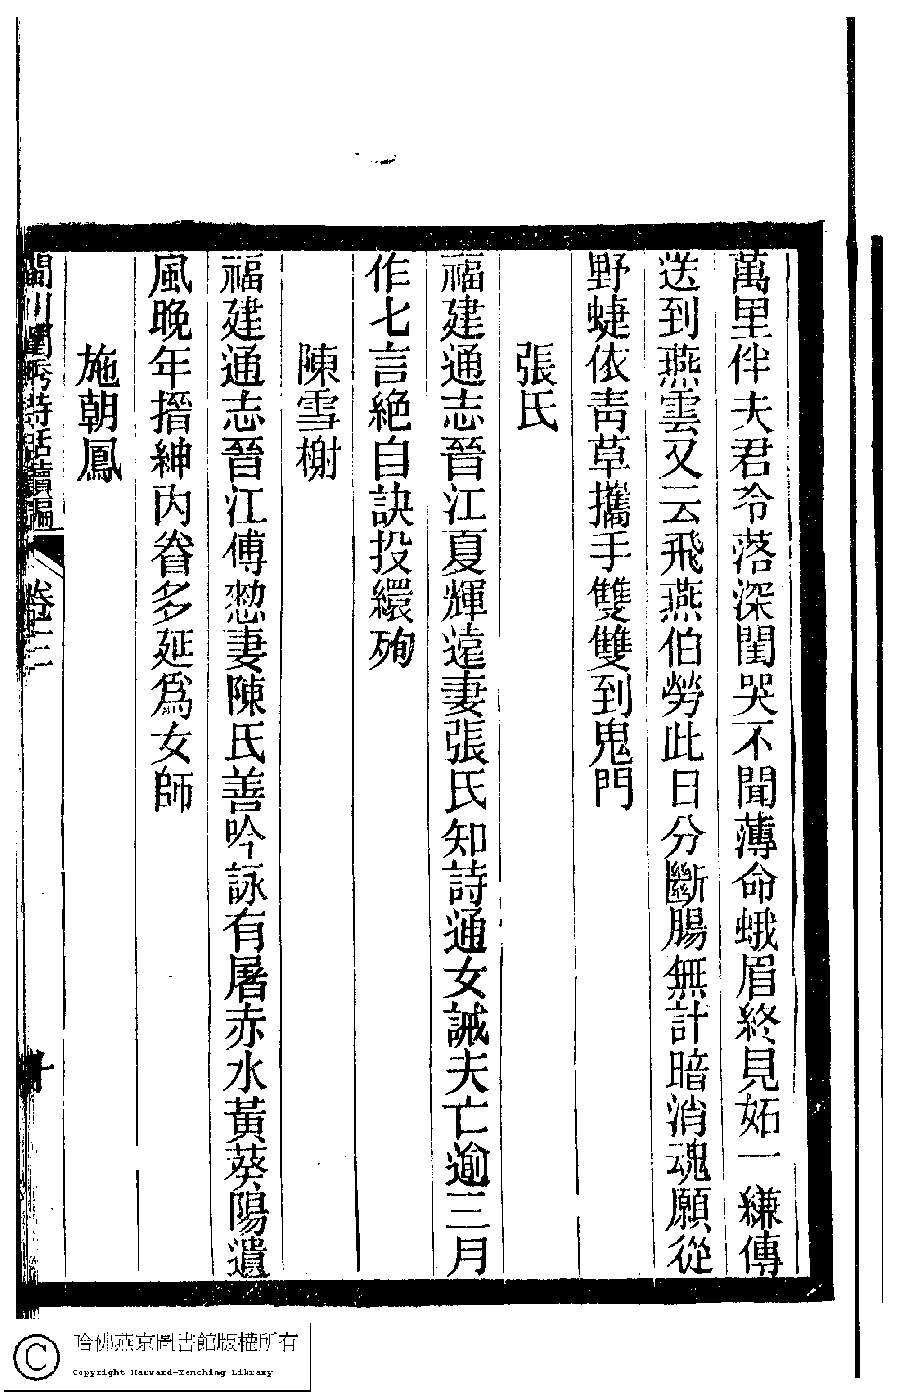 萬里伴夫君冷落深閨哭不聞薄命蛾眉終見妬一縑傳
送到燕雲又云飛燕伯勞此日分斷腸無計暗消魂願從
野蜨依靑草攜手雙雙到鬼門
張氏
福建通志晉江夏輝遠妻張氏知詩通女誡夫亡逾三月
作七言絶自訣投繯殉
陳雪榭
福建通志晉江傅懋妻陳氏善吟詠有屠赤水黃葵陽遺
風晚年搢紳内眷多延爲女師
施朝鳳
閩川閨秀詩話續編 卷三 十
哈佛燕京圖書館版權所有
Copyright Harvard-Yenching Library